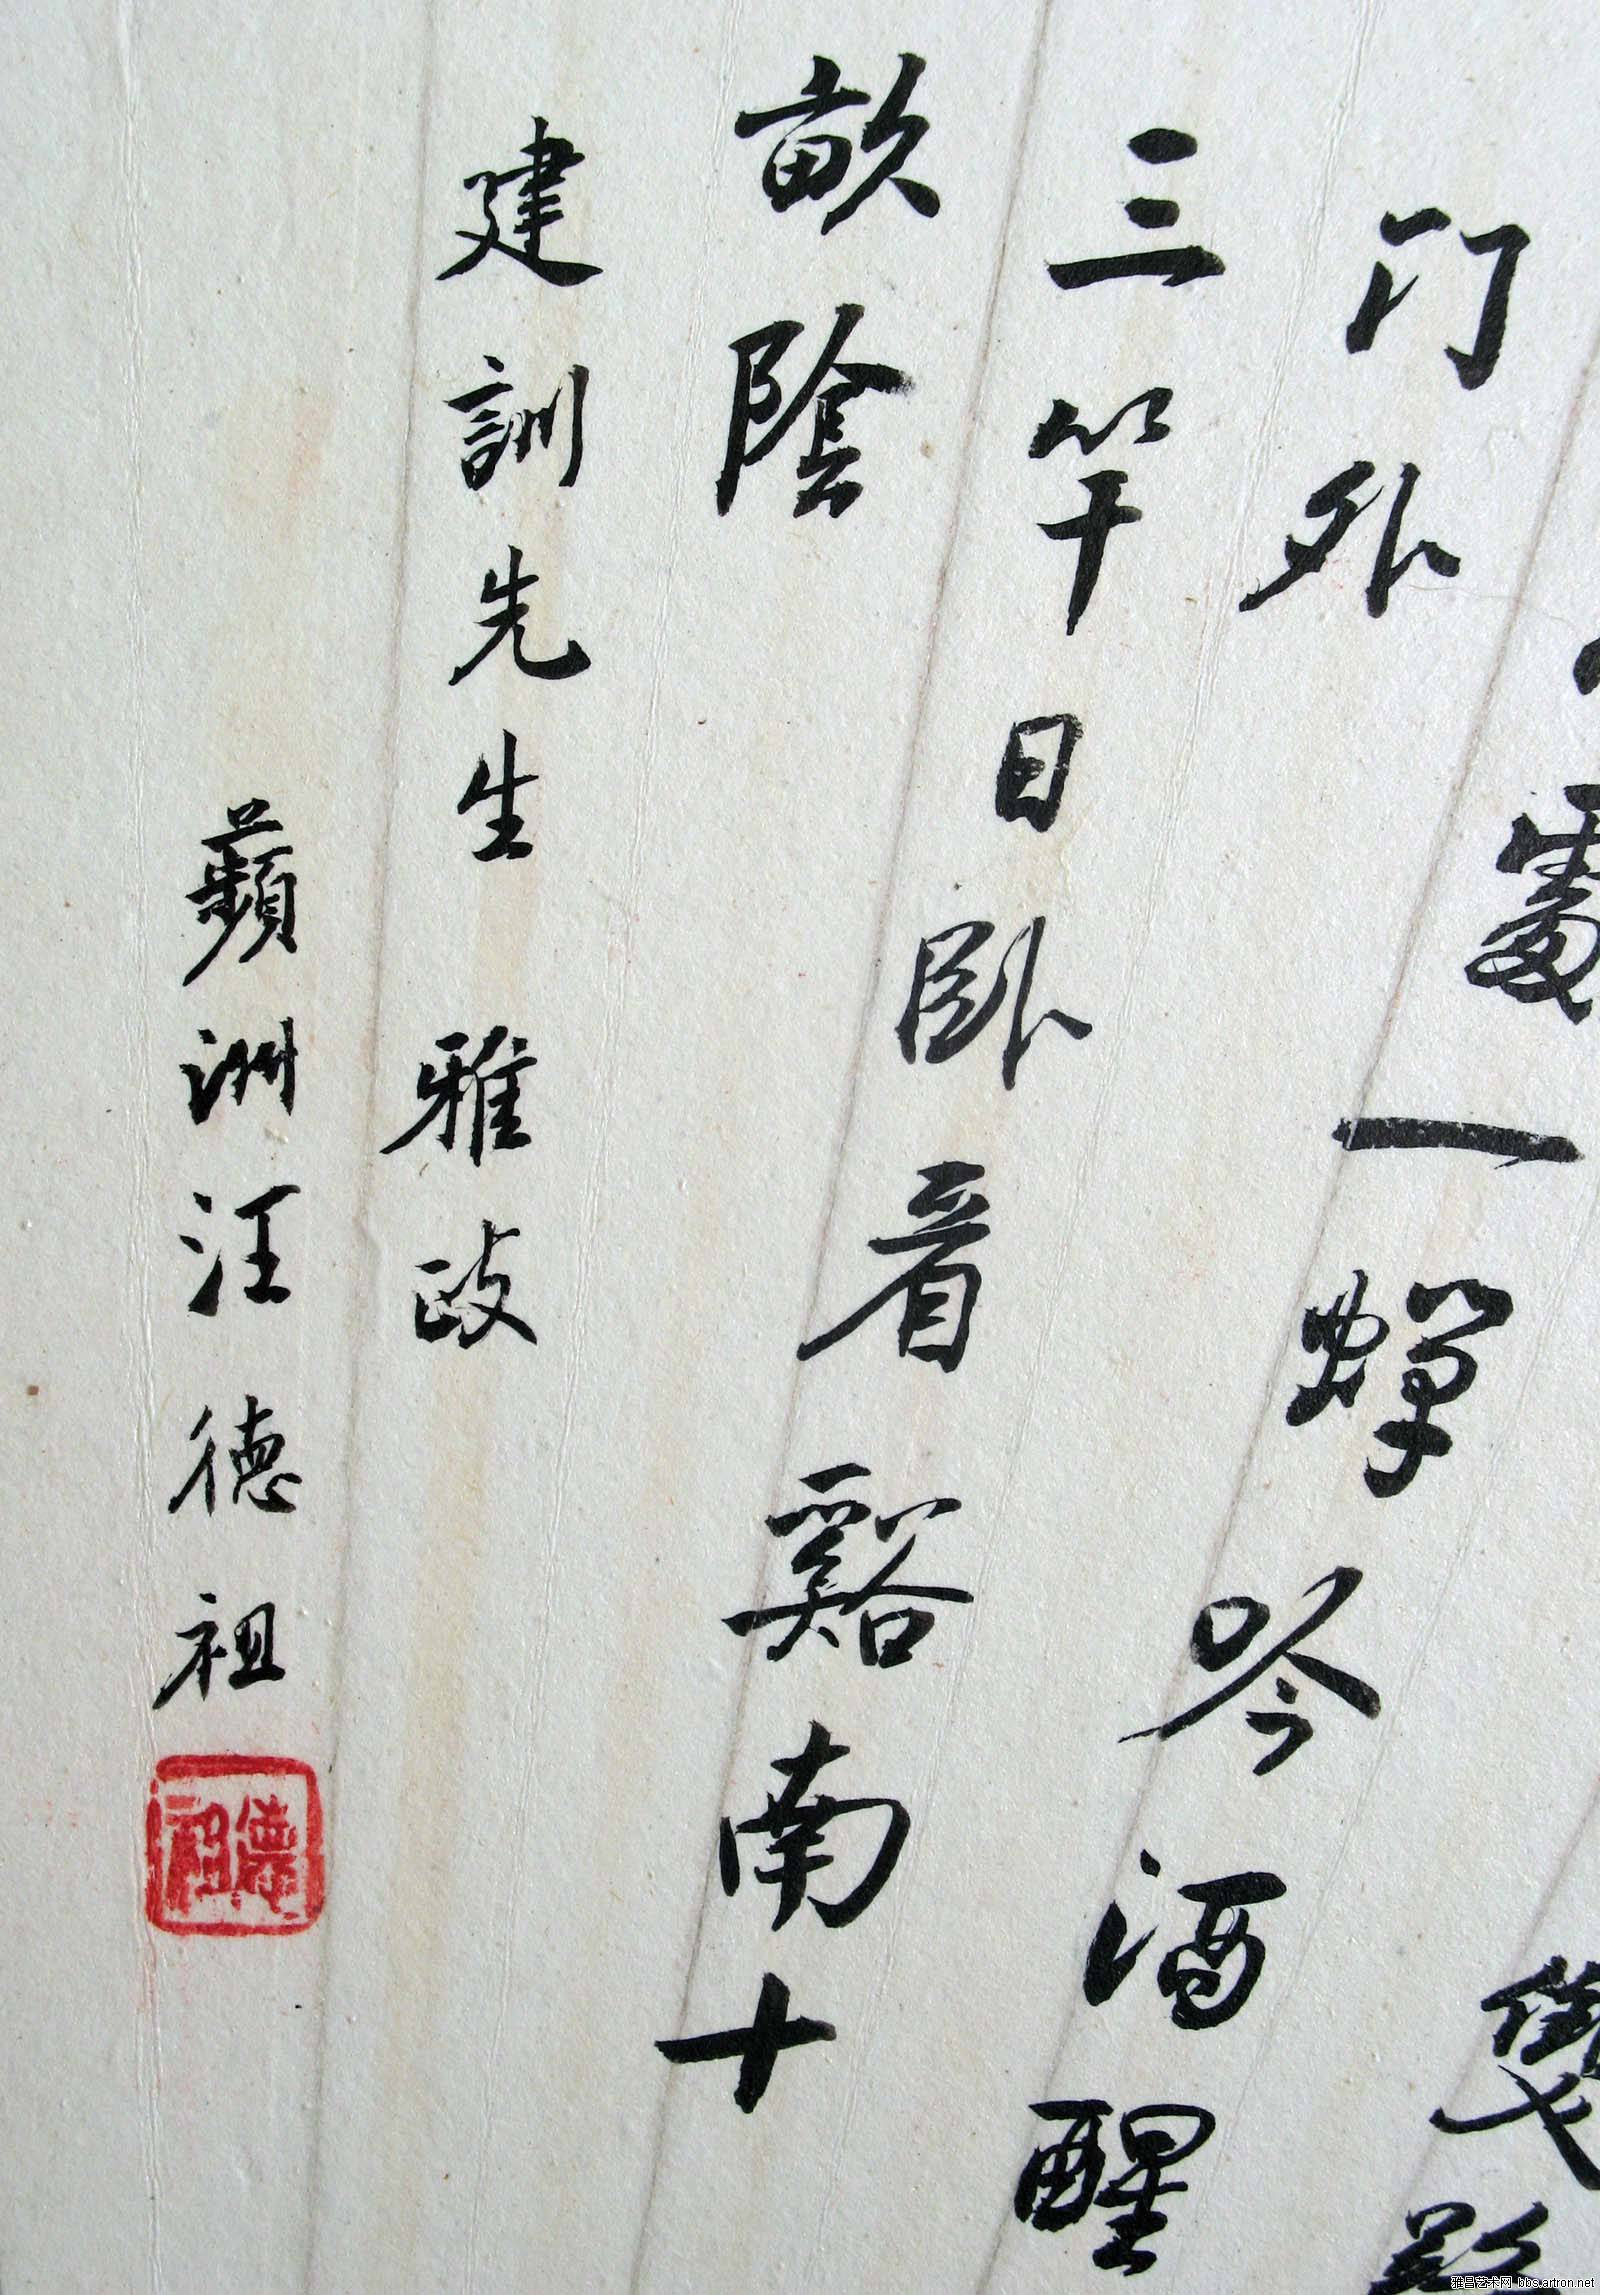 雙
處一蟬吟酒醒
門外
三竿日臥看谿南十
畝陰
建訓先生雅政
蘋洲汪德祖
德祖
雅昌艺术网 bbs.artron.net